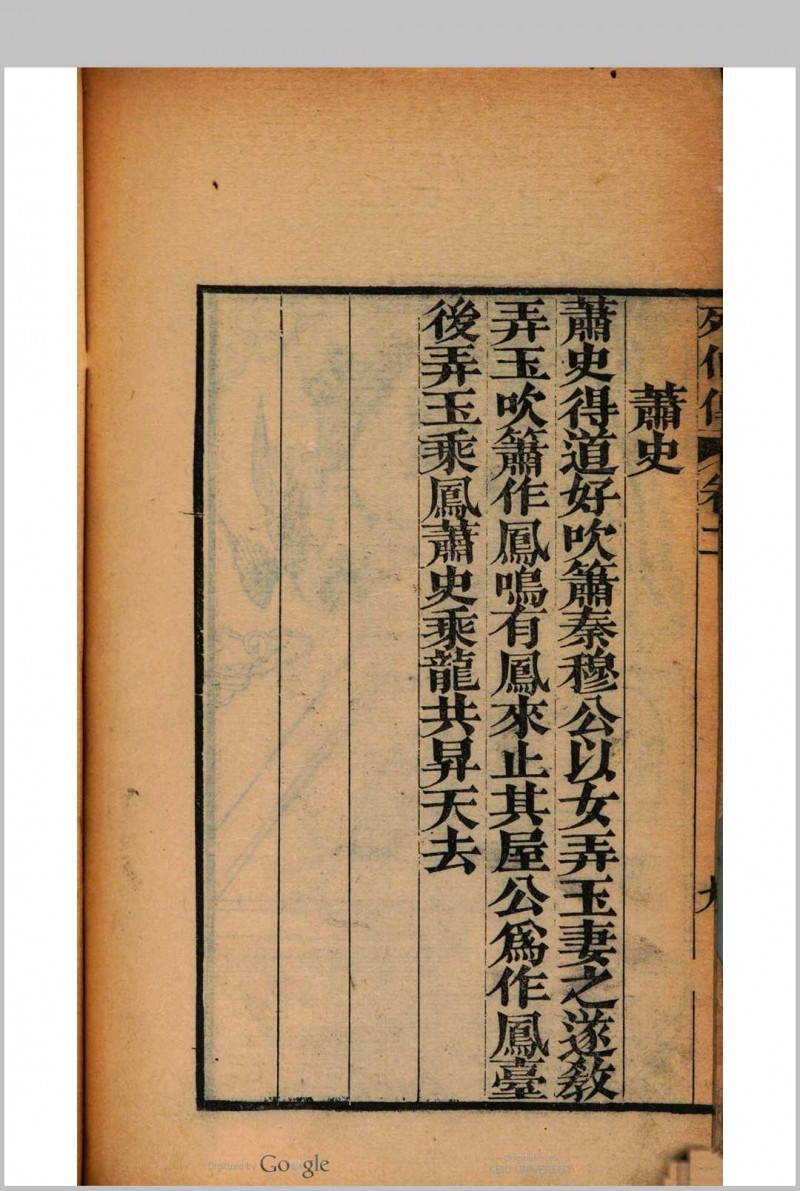 列仙傳 卷二
九
蕭史
蕭史得道好吹簫秦穆公以女弄玉妻之遂敎
弄玉吹簫作鳳鳴有鳳來止其屋公爲作鳳臺
後弄玉乘鳳蕭史乘龍共昇天去
Digitized by Google
Original from
KEIO UNIVERSITY